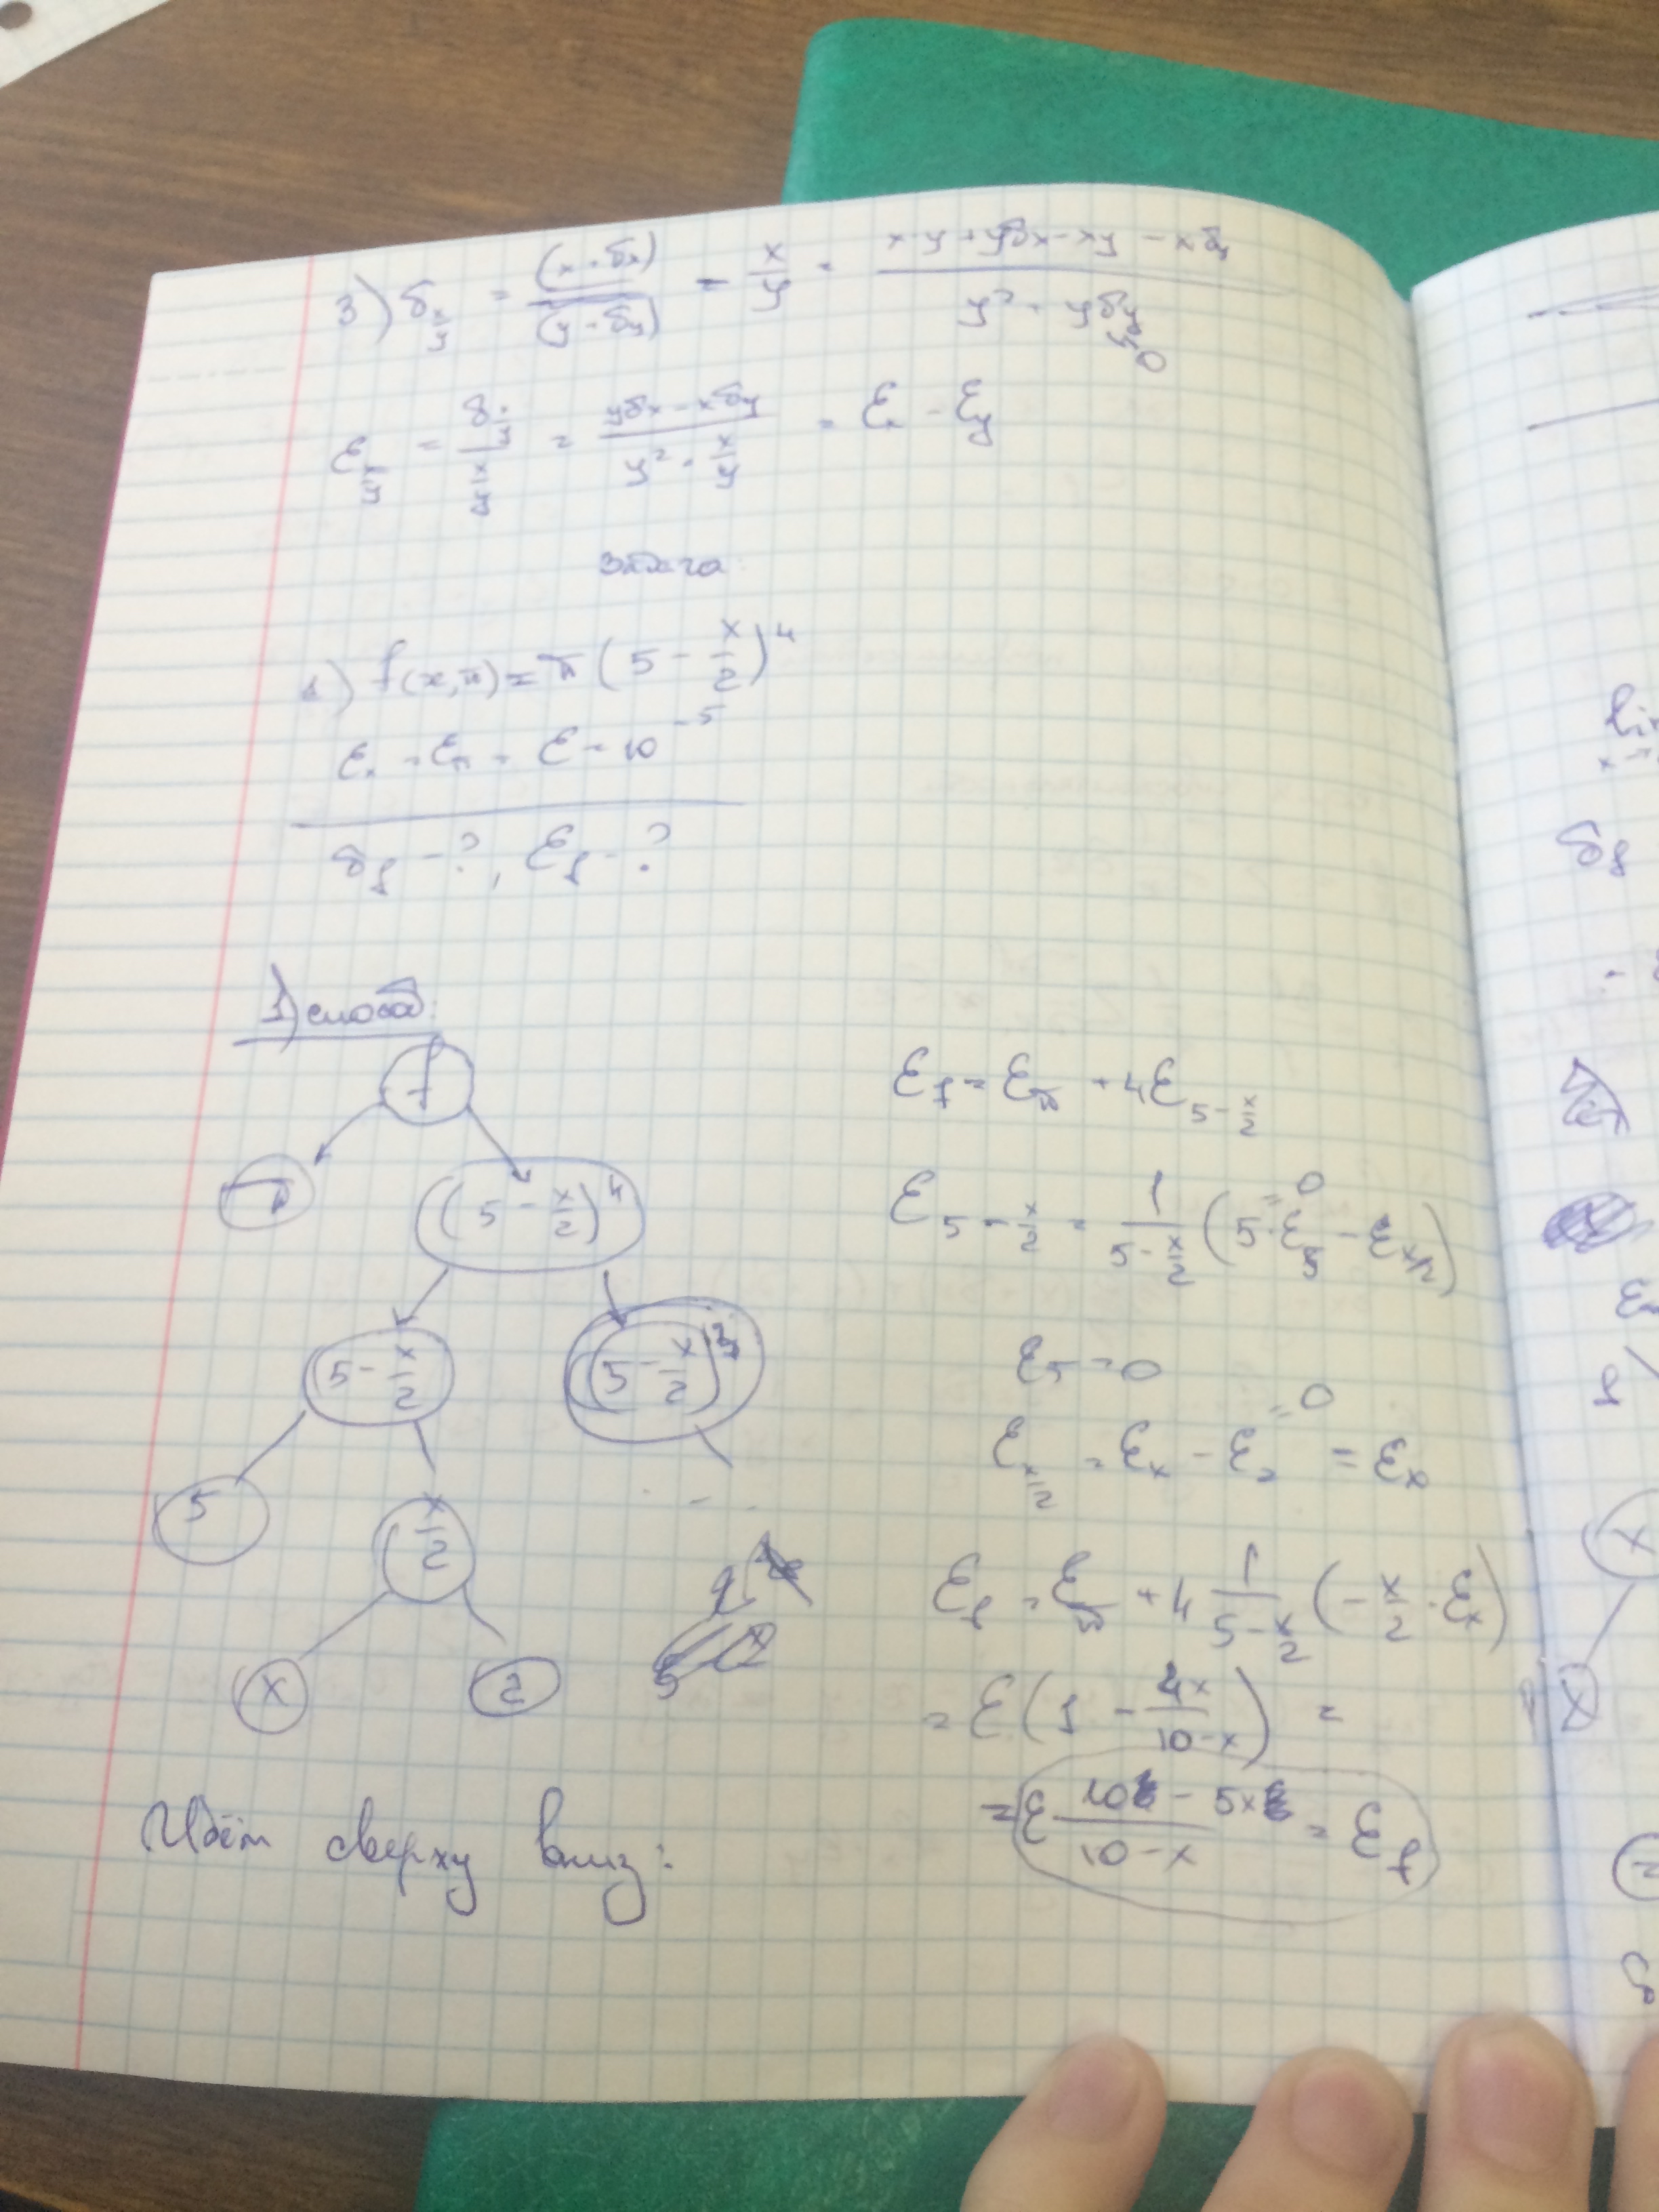 3) δ_{x/y} = (x + δx)/(y + δy) - x/y = (xy + yδx - xy - xδy)/(y² + yδy) → 0
ε_{x/y} = δ_{x/y}/(x/y) = (yδx - xδy)/(y² · x/y) = εx - εy
задача
1) f(x, π) = π(5 - x/2)⁴
εx = επ = ε = 10⁻⁵
δf - ?, εf - ?
1) способ:
f
π
(5 - x/2)⁴
5 - x/2
(5 - x/2)³
5
x/2
. - - .
x
2
Идём сверху вниз:
εf = επ + 4ε_{5 - x/2}
ε_{5 - x/2} = 1/(5 - x/2) (5·ε5 - ε_{x/2})
= 0
ε5 = 0
ε_{x/2} = εx - ε2 = εx
= 0
εf = επ + 4 1/(5 - x/2) (- x/2 · εx)
= ε(1 - 4x/(10 - x)) =
= ε (10 - 5x)/(10 - x) = εf
δf
x
x